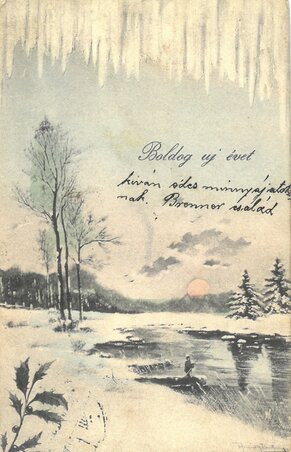 Boldog uj évet
kiván édes mindnyájatok
nak. Brenner család